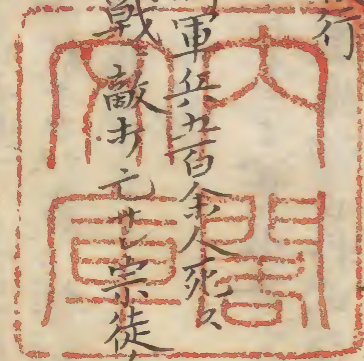 行
軍兵五百余人死
戦敵打亡サ宗徒
内閣
文庫